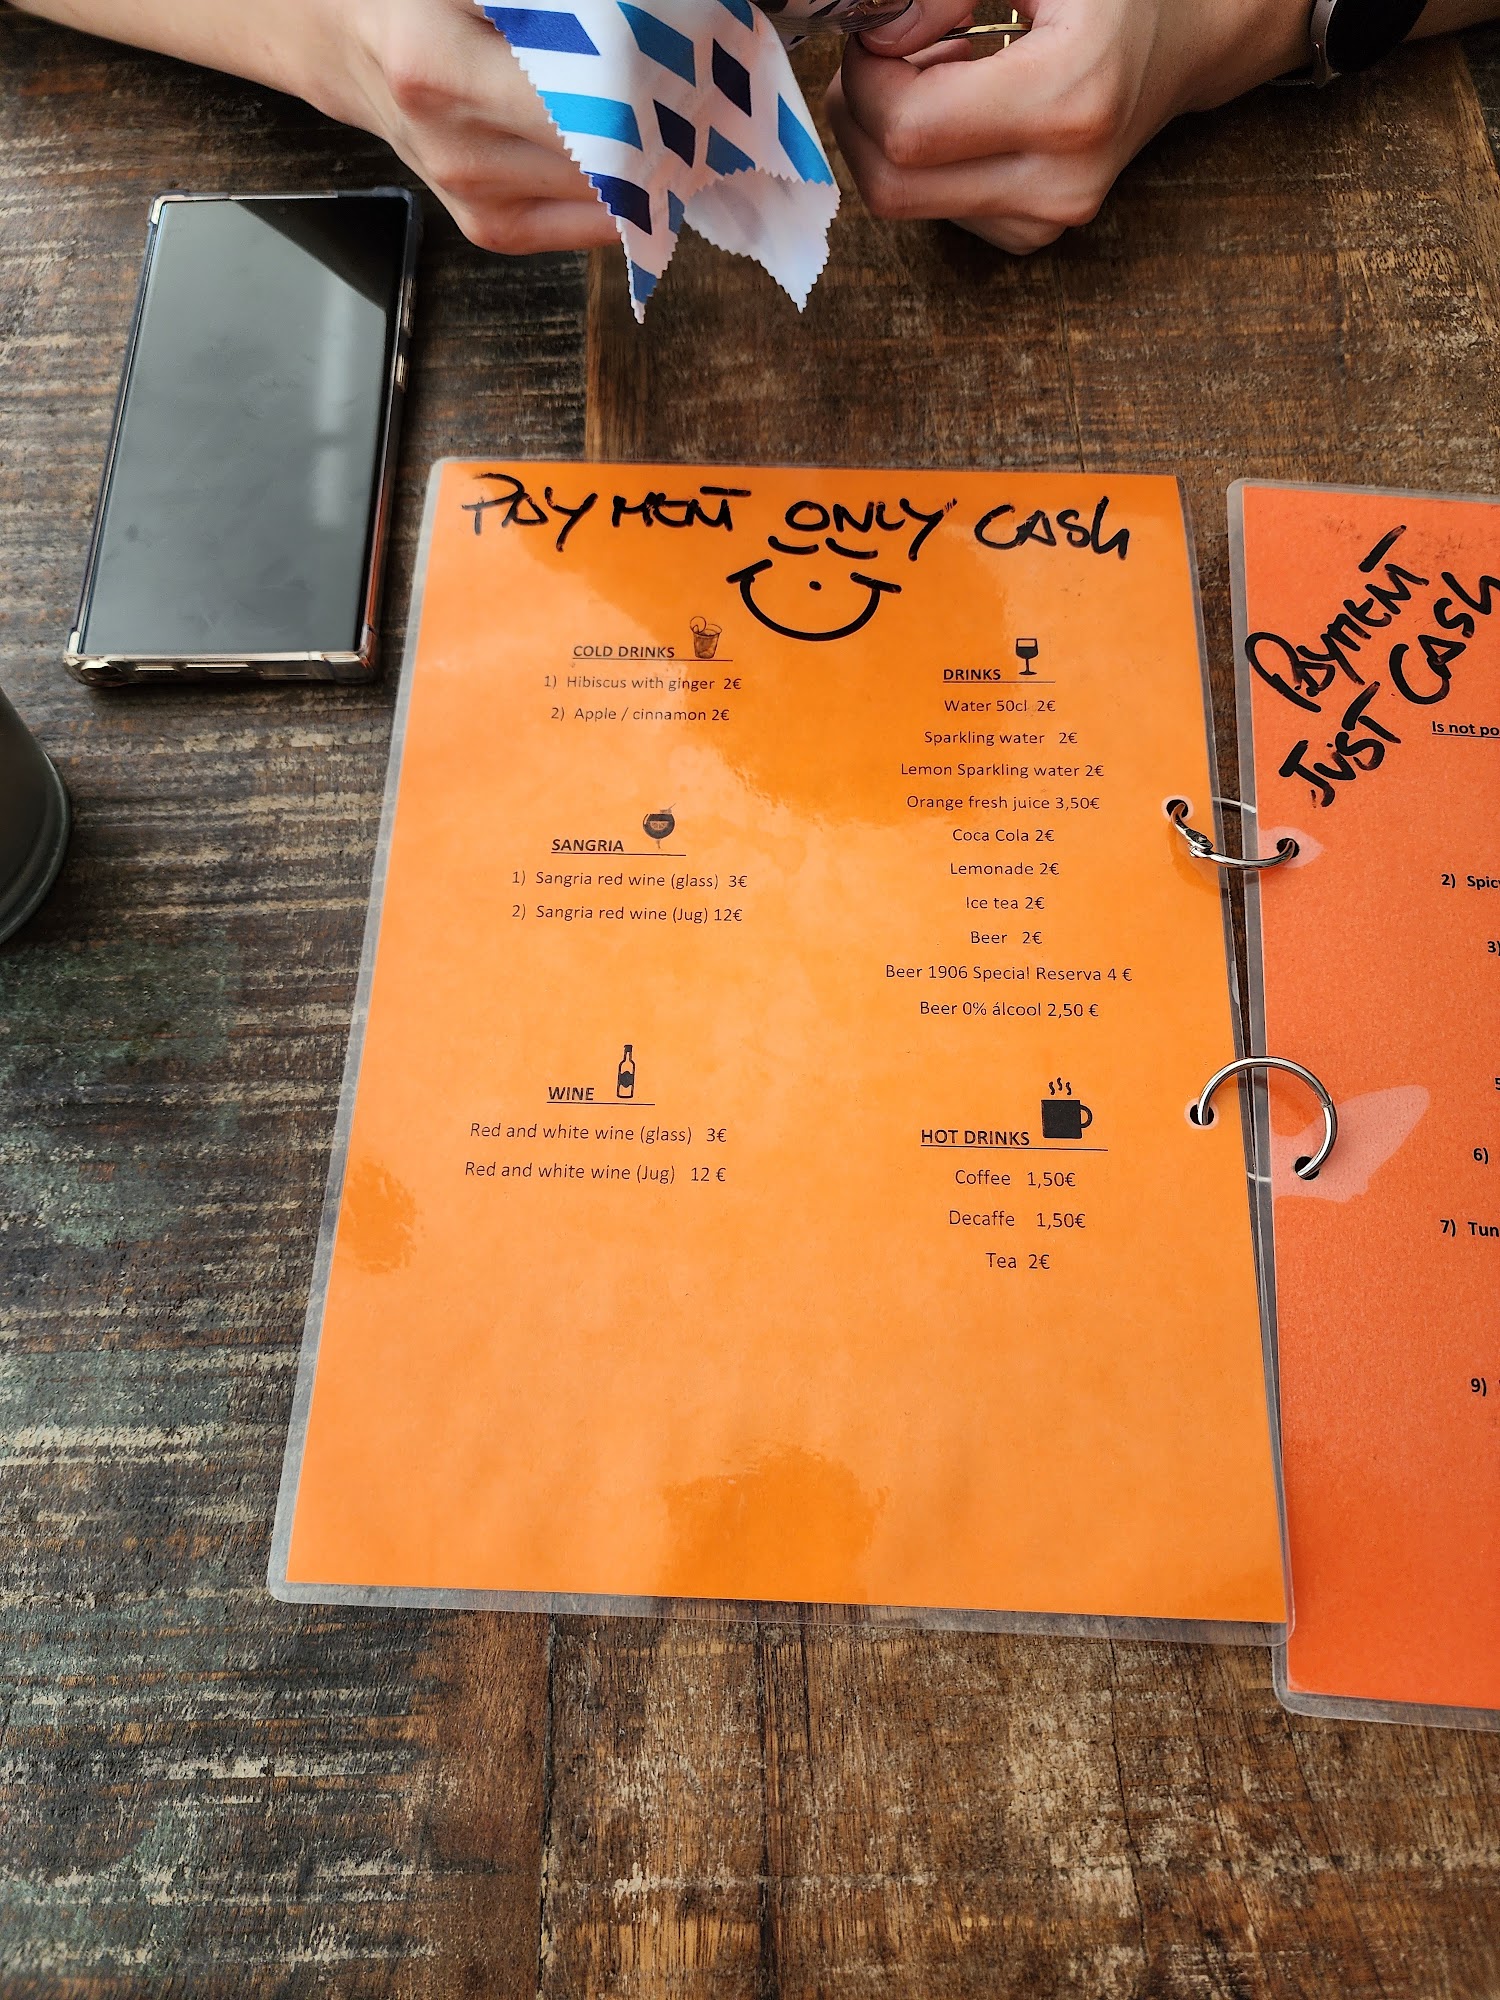 PAYMENT ONLY CASH
COLD DRINKS
1) Hibiscus with ginger 2€
2) Apple / cinnamon 2€
SANGRIA
1) Sangria red wine (glass) 3€
2) Sangria red wine (Jug) 12€
WINE
Red and white wine (glass) 3€
Red and white wine (Jug) 12 €
DRINKS
Water 50cl 2€
Sparkling water 2€
Lemon Sparkling water 2€
Orange fresh juice 3,50€
Coca Cola 2€
Lemonade 2€
Ice tea 2€
Beer 2€
Beer 1906 Special Reserva 4 €
Beer 0% álcool 2,50 €
HOT DRINKS
Coffee 1,50€
Decaffe 1,50€
Tea 2€
PAYMENT
JUST CASH
Is not po
2) Spic
3)
5
6)
7) Tun
9)